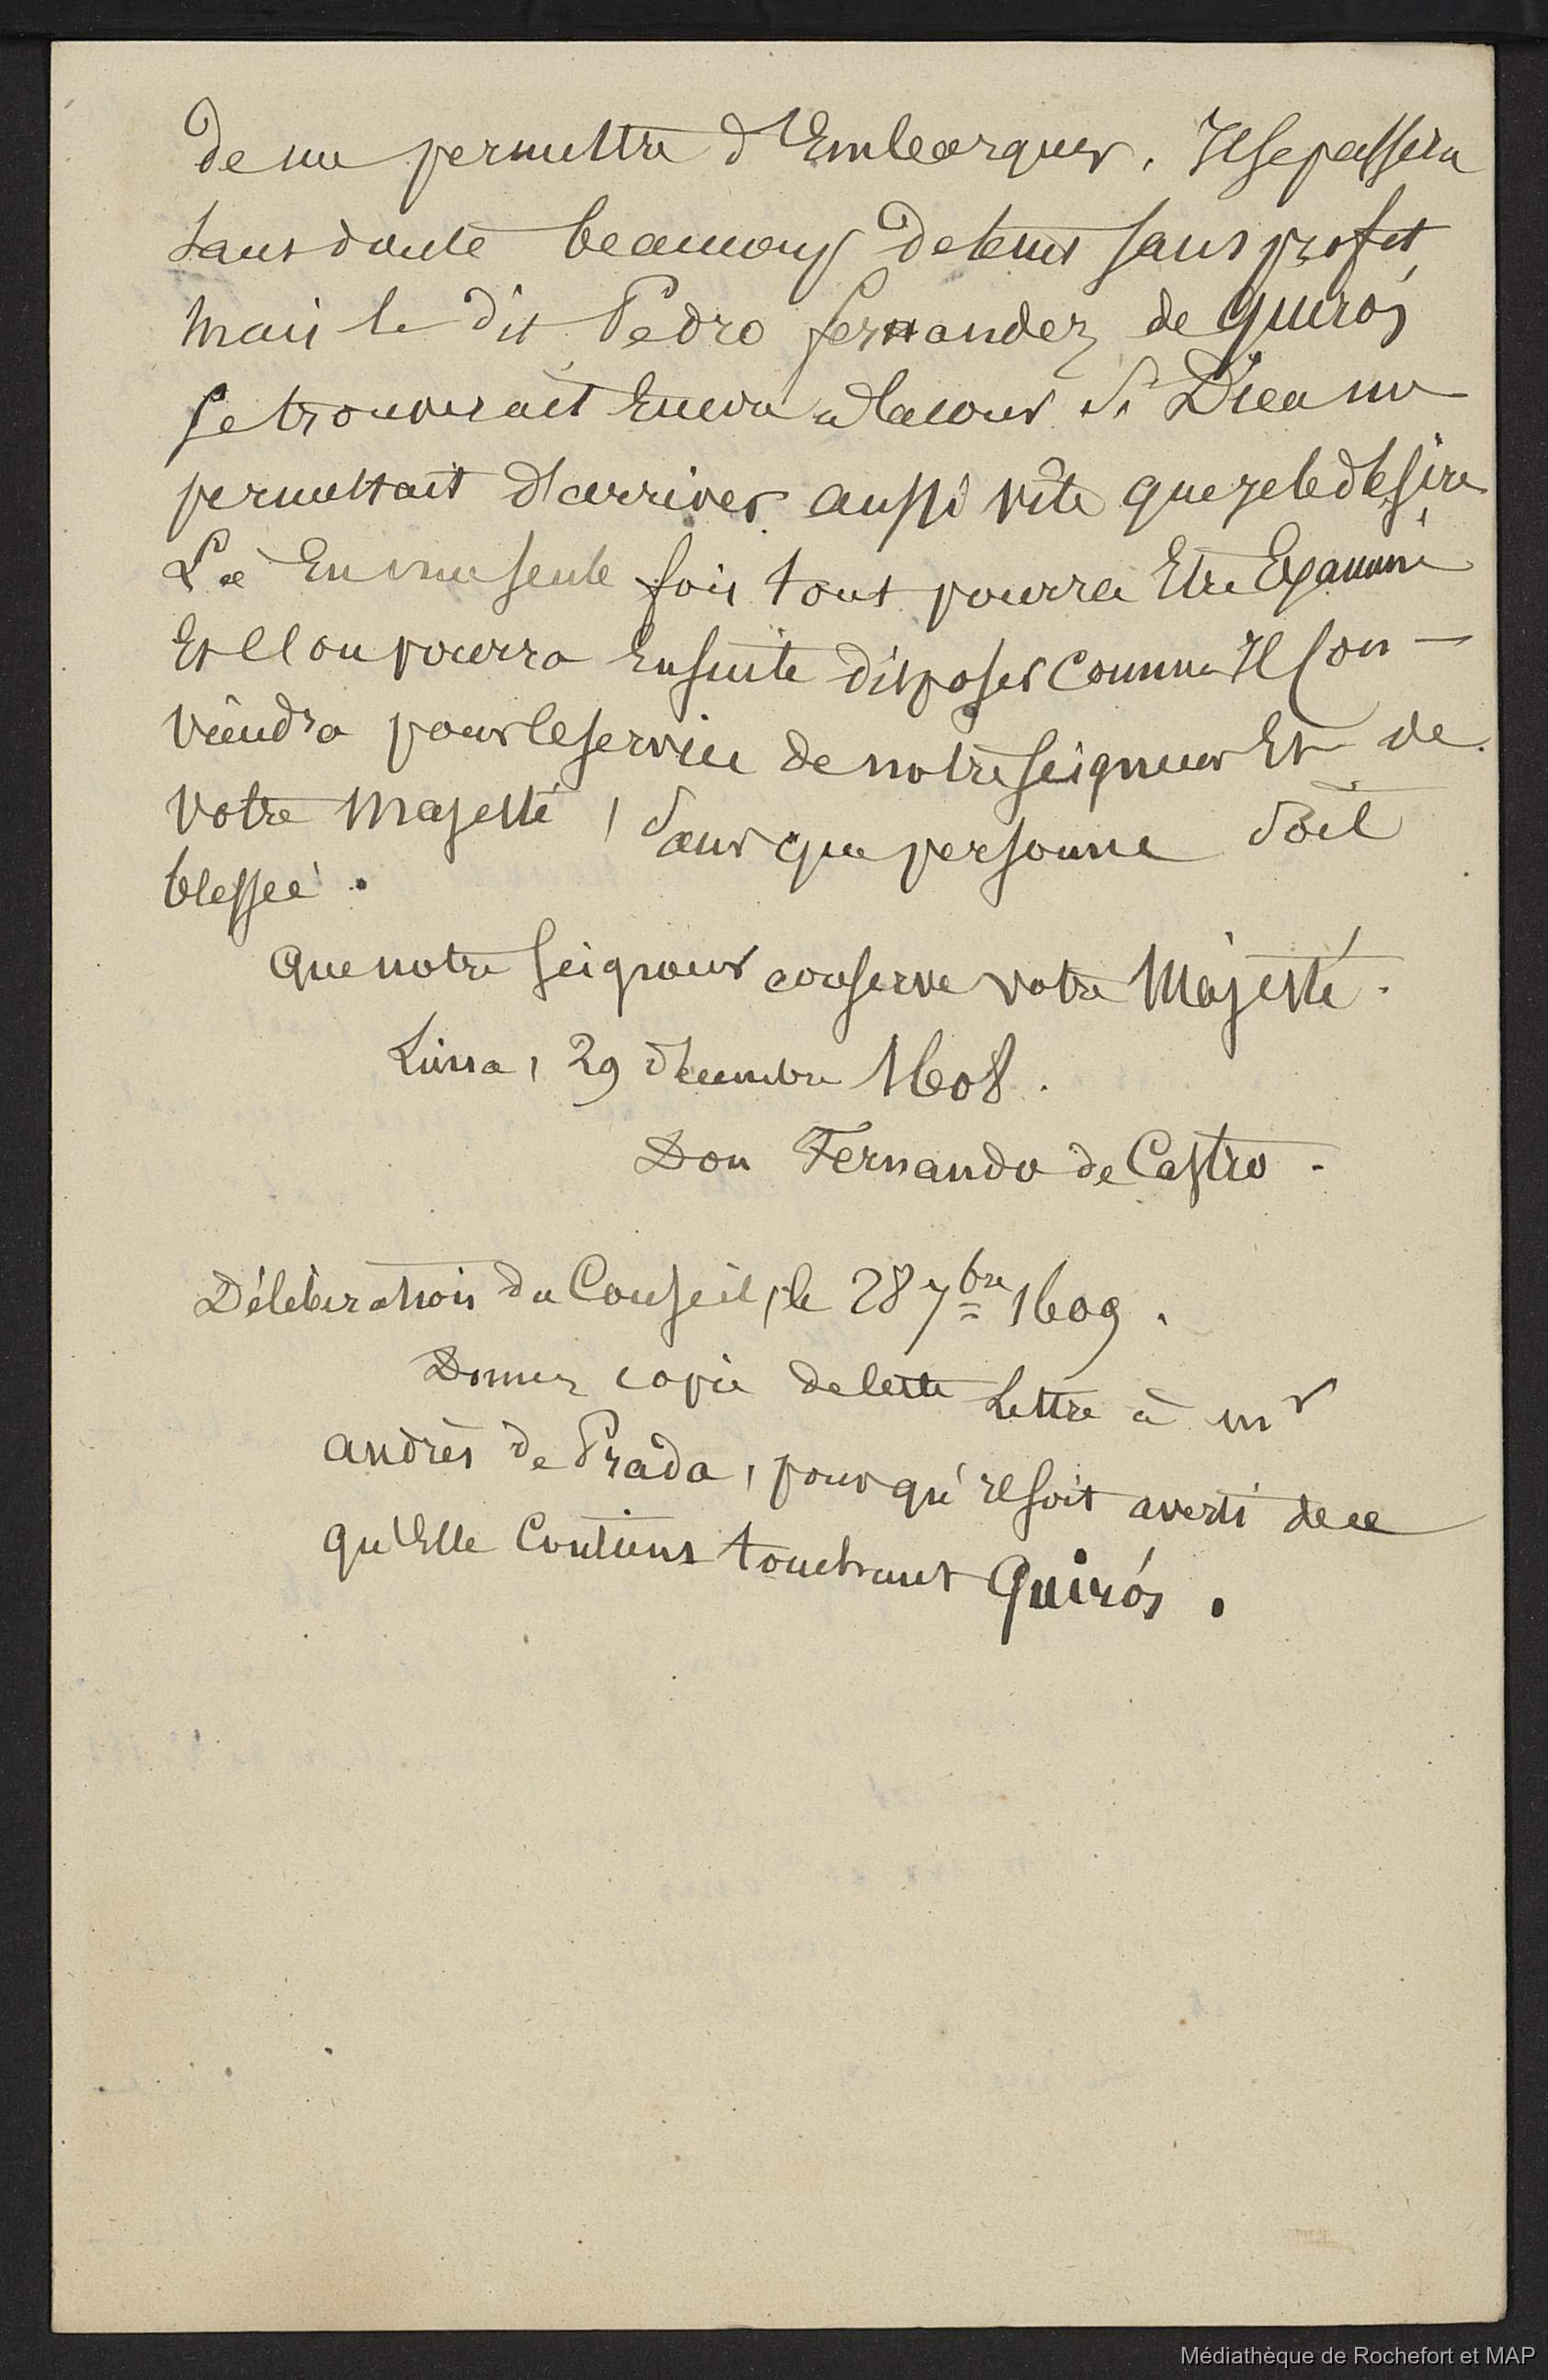 de me permettre d'Embarquer. Il se passera
sans doute beaucoup de tems sans profit,
mais le dit Pedro fernandez de Quirós
se trouverait Encore a la cour si Dieu me
permettait d'arriver aussi vite que je le désire.
Là En une seule fois tout pourra Etre Examiné
Et l'on pourra Ensuite disposer comme Il con-
viendra pour le service de notre seigneur Et de
votre Majesté, sans que personne soit
blessée.
Que notre seigneur conserve votre Majesté.
Lima, 29 décembre 1608.
Don Fernando de Castro.
Délibération du Conseil, le 28 7bre 1609.
Donnez copie de cette Lettre à mr
andrès de Prada, pour qu'il soit averti de ce
qu'Elle Contient touchant Quirós.
Médiathèque de Rochefort et MAP